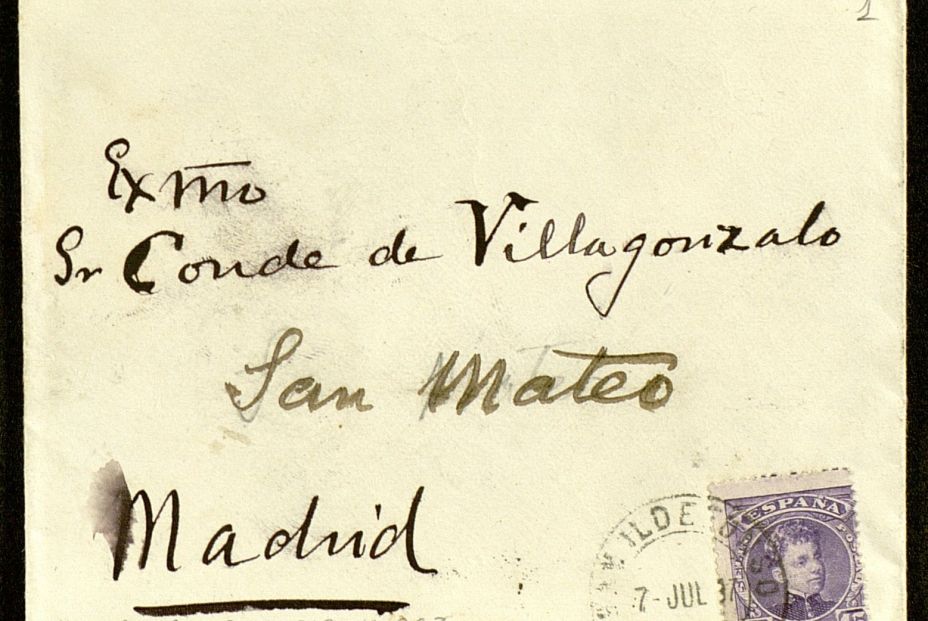 1
Exmo
Sr Conde de Villagonzalo
San Mateo
Madrid
ILDE
7-JUL
ESPAÑA